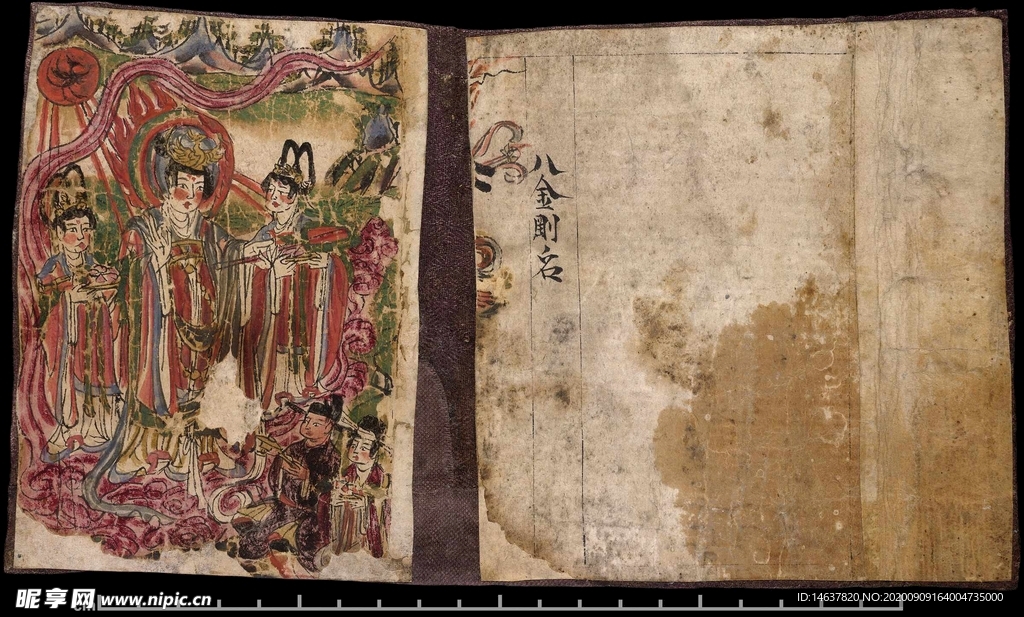 八金剛名
昵享网 www.nipic.cn
ID:14637820,NO:20200909164004735000